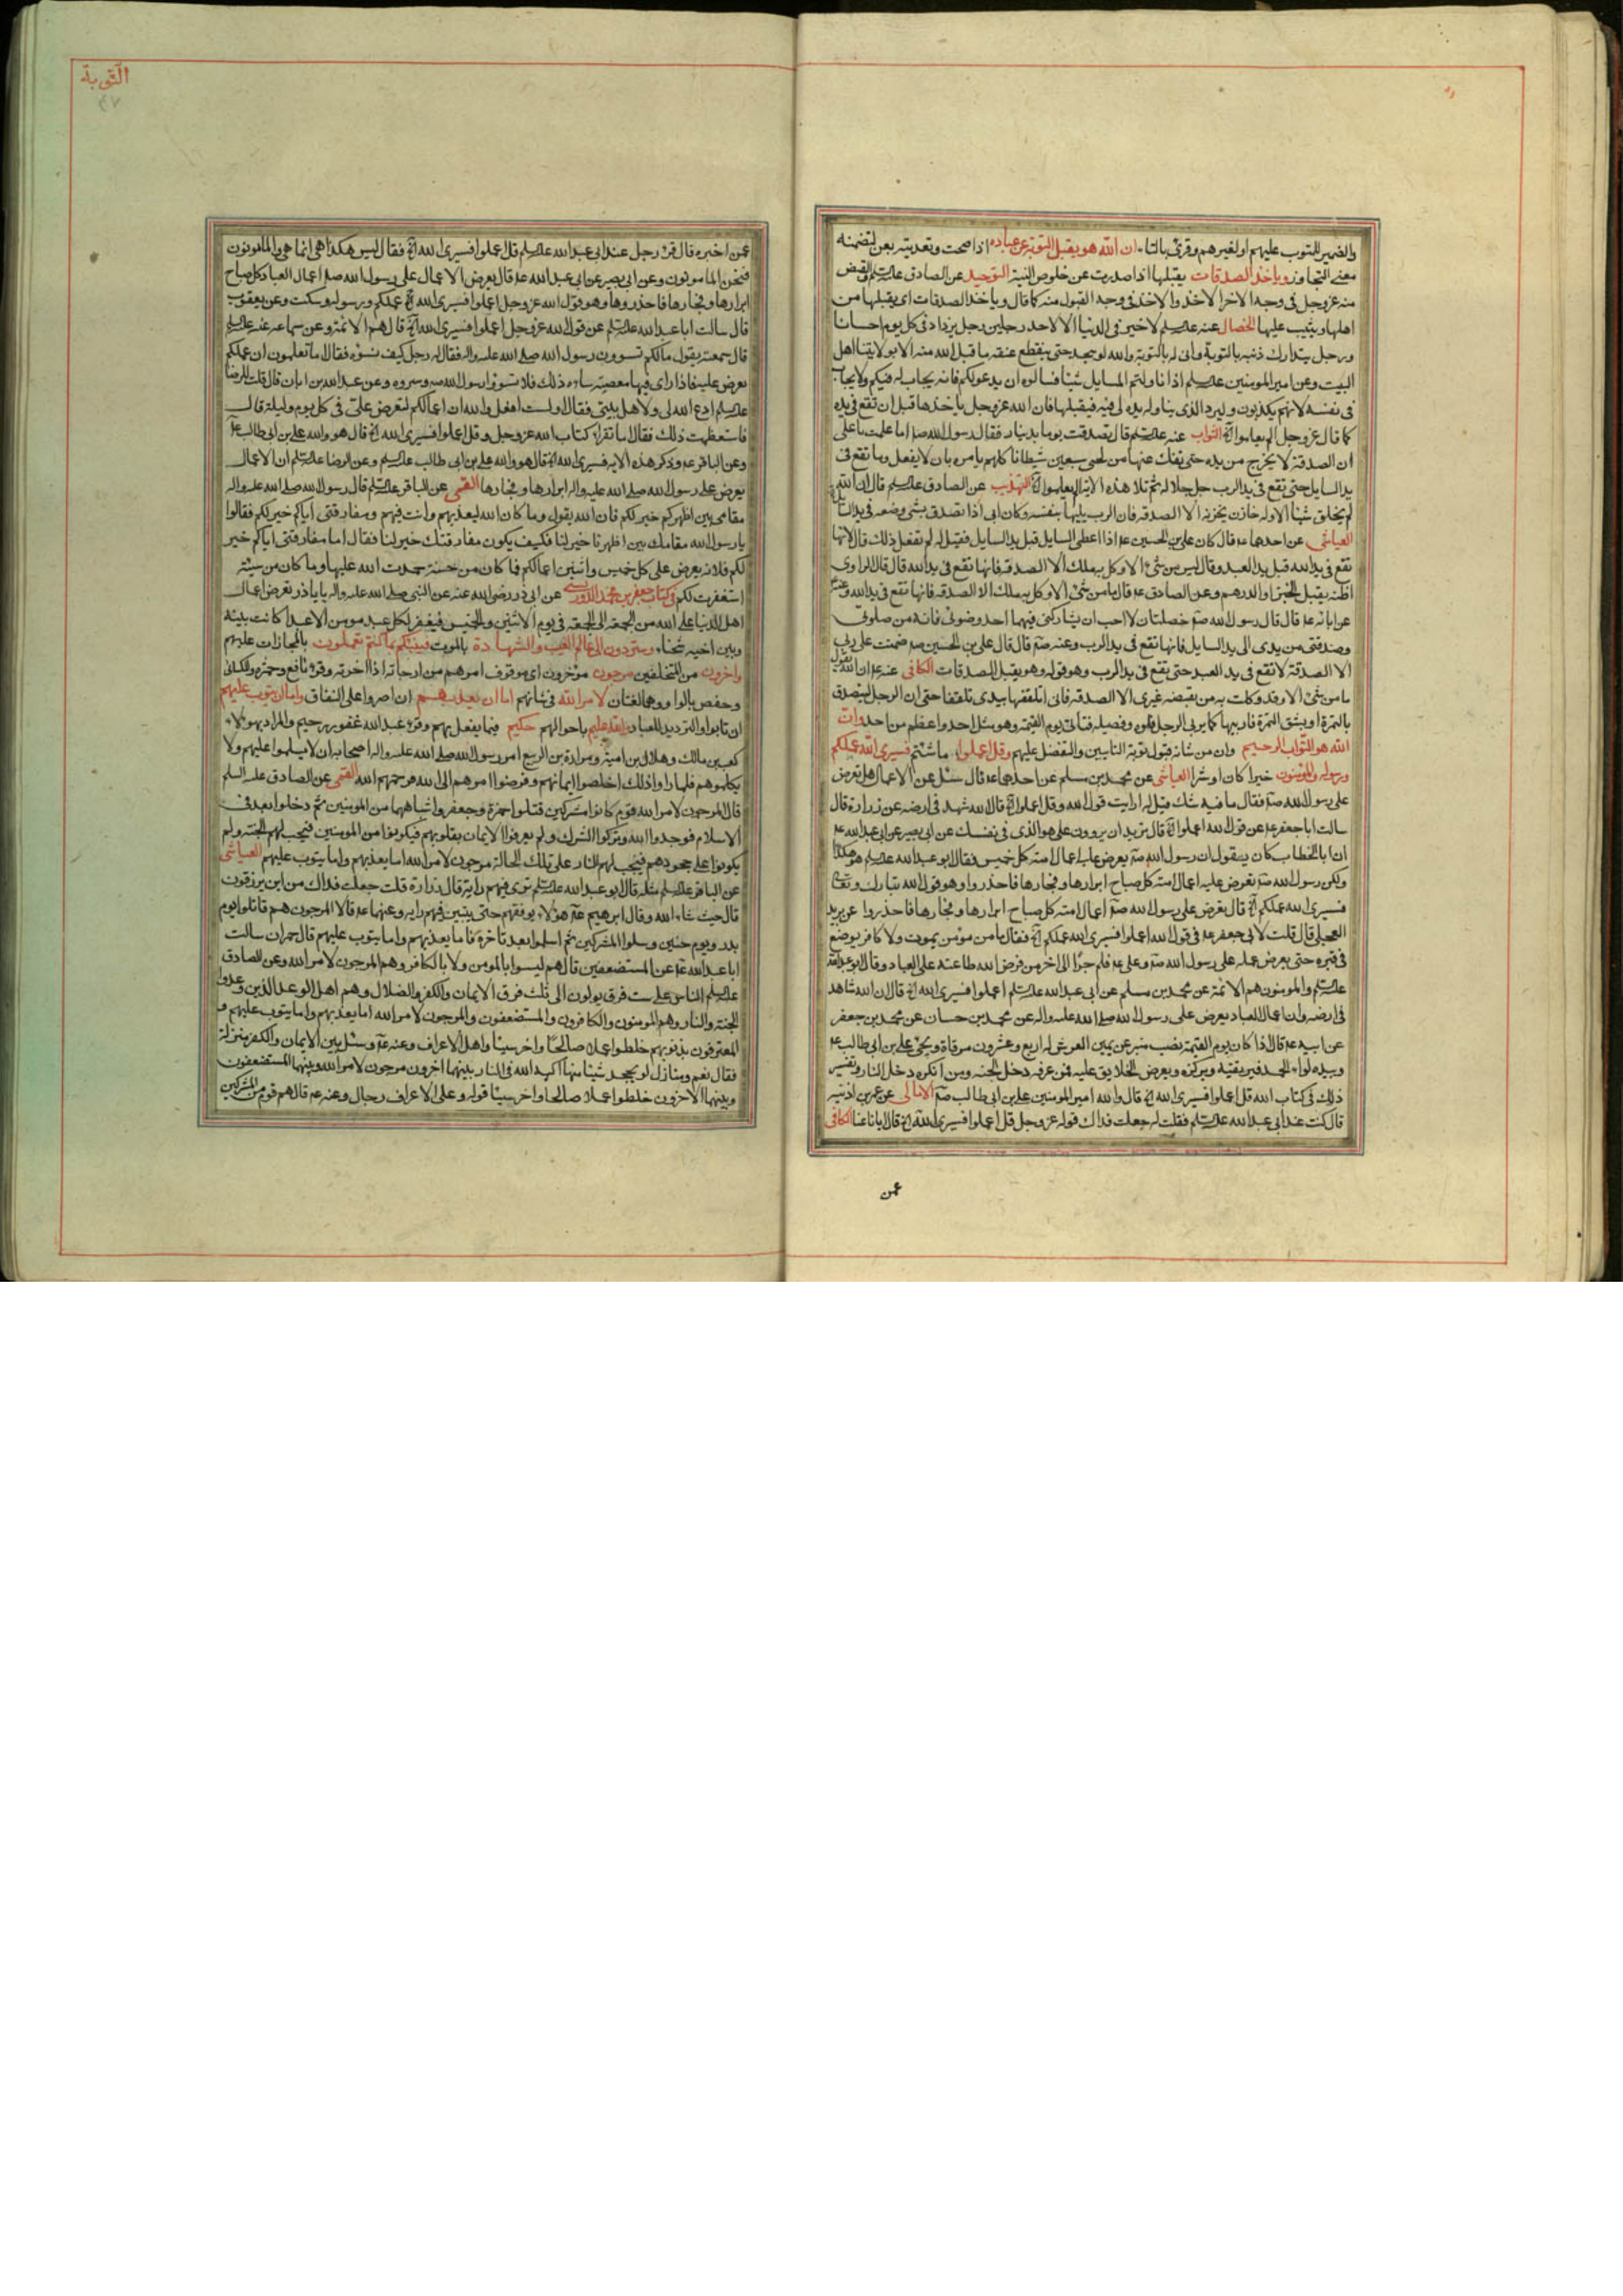 والضمير للمتوب عليهم او لغيرهم وقرئ بالتاء ان الله هو يقبل التوبة عن عباده اذا صحت وتعديته بعن لتضمنه
معنى التجاوز وياخذ الصدقات يقبلها اذا صدرت عن خلوص النية التوحيد عن الصادق علیه السلم والقبض
منه عز وجل فى وجه الاخر الاخذ والاخذ فى وجه القبول منه كما قال وياخذ الصدقات اى يقبلها من
اهلها ويثيب عليها الخصال عنه علیه السلم لا خير فى الدنيا الا لاحد رجلين رجل يزداد فى كل يوم احسانا
ورجل يتدارك ذنبه بالتوبة وانى له بالتوبة والله لو سجد حتى ينقطع عنقه ما قبل الله منه الا بولايتنا اهل
البيت وعن امير المومنين علیه السلم اذا ناولتم السايل شيئا فسالوه ان يدعو لكم فانه يجاب له فيكم ولا يجاب
فى نفسه لانهم يكذبون وليرد الذى يناوله يده الى فيه فيقبلها فان الله عز وجل ياخذها قبل ان تقع فى يده
كما قال عز وجل الم يعلموا الخ الثواب عنه علیه السلم قال تصدقت يوما بدينار فقال رسول الله صم اما علمت يا على
ان الصدقة لا يخرج من يده حتى تفك عنها من لحى سبعين شيطانا كلهم يامره بان لا يفعل وما تقع فى
يد السايل حتى تقع فى يد الرب جل جلاله ثم تلا هذه الاية الم يعلموا الخ التهذيب عن الصادق علیه السلم قال ان الله
لم يخلق شيئا الا وله خازن يخزنه الا الصدقه فان الرب يليها بنفسه وكان ابى اذا تصدق بشئ وضعه فى يد السايل
العياشى عن احدهما عم قال كان على بن الحسين عم اذا اعطى السايل قبل يد السايل فقيل له لم تفعل ذلك قال لانها
تقع فى يد الله قبل يد العبد وقال ليس من شئ الا وكل به ملك الا الصدقه فانها تقع فى يد الله قال قال الراوى
اظنه يقبل الخبز او الدرهم وعن الصادق عم قال ما من شئ الا وكل به ملك الا الصدقه فانها تقع فى يد الله وعنه
عن ابائه عم قال قال رسول الله صم خصلتان لا احب ان يشاركنى فيهما احد وضوئى فانه من صلوتى
وصدقتى من يدى الى يد السايل فانها تقع فى يد الرب وعنه صم قال قال على بن الحسين صم ضمنت على ربى
الا الصدقة لا تقع فى يد العبد حتى تقع فى يد الرب وهو قوله وهو يقبل الصدقات الكافى عنه عم ان الله يقول
ما من شئ الا وقد وكلت به من يقبضه غيرى الا الصدقه فانى اتلقفها بيدى تلقفا حتى ان الرجل ليتصدق
بالتمرة او بشق التمرة فاربيها كما يربى الرجل فلوه وفصيله فتاتى يوم القيمة وهو مثل احد واعظم من احد وان
الله هو التواب الرحيم وان من شانه قبول توبة التايبين والتفضل عليهم وقل اعملوا ما شئتم فسيرى الله عملكم
ورسوله والمؤمنون خيرا كان او شرا العياشى عن محمد بن مسلم عن احدهما عم قال سئل عن الاعمال هل تعرض
على رسول الله صم فقال ما فيه شك قيل له ارايت قول الله وقل اعملوا الخ قال الله شهد فى ارضه عن زرارة قال
سالت ابا جعفر عم عن قول الله اعملوا الخ قال تريد ان يروون على هو الذى فى نفسك عن ابى بصير عن ابى عبد الله عم
ان ابا الخطاب كان يقول ان رسول الله صم يعرض عليه اعمال امته كل خميس فقال ابو عبد الله علیه السلم هو هكذا
ولكن رسول الله صم تعرض عليه اعمال امته كل صباح ابرارها وفجارها فاحذروا وهو قول الله تبارك وتعالى
فسيرى الله عملكم الخ قال يعرض على رسول الله صم اعمال امته كل صباح ابرارها وفجارها فاحذروا عن بريد
العجلى قال قلت لابى جعفر عم فى قول الله اعملوا فسيرى الله عملكم الخ فقال ما من مؤمن يموت ولا كافر يوضع
فى قبره حتى يعرض عمله على رسول الله صم وعلى عم فلم جرا الى اخر من فرض الله طاعته على العباد وقال ابو عبد الله
علیه السلم والمومنون هم الائمة عن محمد بن مسلم عن ابى عبد الله علیه السلم اعملوا فسيرى الله الخ قال ان الله شاهد
فى ارضه وان اعمال العباد يعرض على رسول الله صلى الله عليه واله عن محمد بن حسان عن محمد بن جعفر
عن ابيه عم قال اذا كان يوم القيمة نصب منبر عن يمين العرش له اربع وعشرون مرقاة ويجئ على بن ابى طالب عم
وبيده لواء الحمد فيرتقيه ويركزه ويعرض الخلايق عليه فمن عرفه دخل الجنه ومن انكره دخل النار وتفسير
ذلك فى كتاب الله قل اعملوا فسيرى الله الخ قال والله امير المومنين على بن ابى طالب صم الامالى عن عمر بن اذينه
قال كنت عند ابى عبد الله علیه السلم فقلت له جعلت فداك قوله عز وجل قل اعملوا فسيرى الله الخ قال ايانا عنا الكافى
عمن
التوبة
٤٧
عمن اخبره قال قرء رجل عند ابى عبد الله علیه السلم قل اعملوا فسيرى الله الخ فقال ليس هكذا هى انما هى والمامونون
فنحن المامونون وعن ابى بصير عن ابى عبد الله عم قال يعرض الاعمال على رسول الله صم اعمال العباد كل صباح
ابرارها وفجارها فاحذروها وهو قول الله عز وجل اعملوا فسيرى الله عملكم ورسوله وسكت وعن يعقوب
قال سالت ابا عبد الله علیه السلم عن قول الله عز وجل اعملوا فسيرى الله الخ قال هم الائمة وعن سماعه عنه علیه السلم
قال سمعته يقول ما لكم تسوون رسول الله صلى الله عليه واله فقال له رجل كيف نسوه فقال ما تعلمون ان عملكم
يعرض عليه فاذا راى فيها معصية ساءه ذلك فلا تسوؤا رسول الله صم وسروه وعن عبد الله بن ابان قال قلت للرضا
علیه السلم ادع الله لى ولاهل بيتى فقال اولست افعل والله ان اعمالكم لتعرض على فى كل يوم وليلة قال
فاستعظمت ذلك فقال اما تقرء كتاب الله عز وجل وقل اعملوا فسيرى الله الخ قال هو والله على بن ابى طالب عم
وعن الباقر عم وذكر هذه الايه فسيرى الله الخ قال هو والله على بن ابى طالب علیه السلم وعن الرضا علیه السلم ان الاعمال
يعرض على رسول الله صلى الله عليه واله ابرارها وفجارها القمى عن الباقر علیه السلم قال رسول الله صلى الله عليه واله
مقامى بين اظهركم خير لكم فان الله يقول وما كان الله ليعذبهم وانت فيهم ومفارقتى اياكم خير لكم فقالوا
يا رسول الله مقامك بين اظهرنا خير لنا فكيف يكون مفارقتك خير لنا فقال اما مفارقتى اياكم خير
لكم فلانه يعرض على كل خميس واثنين اعمالكم فما كان من حسنة حمدت الله عليها وما كان من سيئة
استغفرت لكم فى كتاب جعفر بن محمد الدوريسى عن ابى ذر رضى الله عنه عن النبى صلى الله عليه واله يا باذر تعرض اعمال
اهل الدنيا على الله من الجمعه الى الجمعه فى يوم الاثنين والخميس فيغفر لكل عبد مومن الا عبدا كانت بينه
وبين اخيه شحناء وستردون الى عالم الغيب والشهادة بالموت فينبئكم بما كنتم تعملون بالمجازات عليهم
واخرون من المتخلفين مرجون مؤخرون اى موقوف امرهم من ارجاته اذا اخرته وقرء نافع وحمزه والكسائى
وحفص بالواو وهما لغتان لامر الله فى شانهم اما ان يعذبهم ان اصروا على النفاق واما ان يتوب عليهم
ان تابوا والترديد للعباد والله عليم باحوالهم حكيم فيما يفعل بهم وقرء عبد الله غفور رحيم والمراد بهؤلاء
كعب بن مالك وهلال بن امية ومرارة بن الربيع امر رسول الله صلى الله عليه واله اصحابه ان لا يسلموا عليهم ولا
يكلموهم فلما راوا ذلك اخلصوا ايمانهم وفوضوا امرهم الى الله فرحمهم الله القمى عن الصادق عليه السلم
قال المرجون لامر الله قوم كانوا مشركين قتلوا حمزة وجعفر واشباههما من المومنين ثم دخلوا بعد فى
الاسلام فوحدوا الله وتركوا الشرك ولم يعرفوا الايمان بقلوبهم فيكونوا من المومنين فيجب لهم الجنة ولم
يكونوا على جحودهم فيجب لهم النار على تلك الحالة مرجون لامر الله اما يعذبهم واما يتوب عليهم العياشى
عن الباقر علیه السلم مثله قال ابو عبد الله علیه السلم ترى فيهم راية قال زرارة قلت جعلت فداك من اين يرزقون
قال حيث شاء الله وقال ابرهيم عم هؤلاء يوقفهم حتى يتبين فيهم رايه وعنهما عم قالا المرجون هم قاتلوا يوم
بدر ويوم حنين وسلوا المشركين ثم اسلموا بعد تاخره فاما يعذبهم واما يتوب عليهم قال حمران سالت
ابا عبد الله عم عن المستضعفين قال هم ليسوا بالمومن ولا بالكافر وهم المرجون لامر الله وعن الصادق
علیه السلم الناس على ست فرق يولون الى ثلث فرق الايمان والكفر والضلال وهم اهل الوعد الذين وعدوا
الجنة والنار وهم المومنون والكافرون والمستضعفون والمرجون لامر الله اما يعذبهم واما يتوب عليهم و
المعترفون بذنوبهم خلطوا عملا صالحا واخر سيئا واهل الاعراف وعنه عم وسئل بين الايمان والكفر منزلة
فقال نعم ومنازل لو يجحد شيئا منها اكبه الله فى النار بينهما اخرون مرجون لامر الله وبينهما المستضعفون
وبينهما الاخرون خلطوا عملا صالحا واخر سيئا قوله وعلى الاعراف رجال وعنه عم قال هم قوم من المشركين